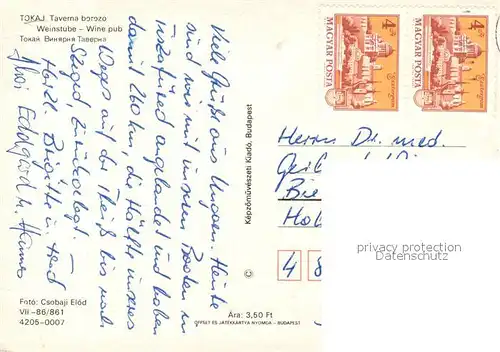 TOKAJ. Taverna borozó
Weinstube – Wine pub
Токай. Винярия Таверна
Viele Grüße aus Ungarn. Heute
sind wir mit unseren Booten in
Tiszafüred angelandet und haben
damit 260 km, die Hälfte unseres
Weges auf der Theiß bis nach
Szeged zurückgelegt.
Herzl. Brigitte u. Fred
Foto: Csobaji Előd
VII –86/861
4205-0007
Képzőművészeti Kiadó, Budapest
©
Ára: 3,50 Ft
OFFSET ÉS JÁTÉKKÁRTYA NYOMDA – BUDAPEST
4 Ft
MAGYAR POSTA
Esztergom
4 Ft
MAGYAR POSTA
Esztergom
Herrn Dr. med.
4 8
privacy protection
watermark